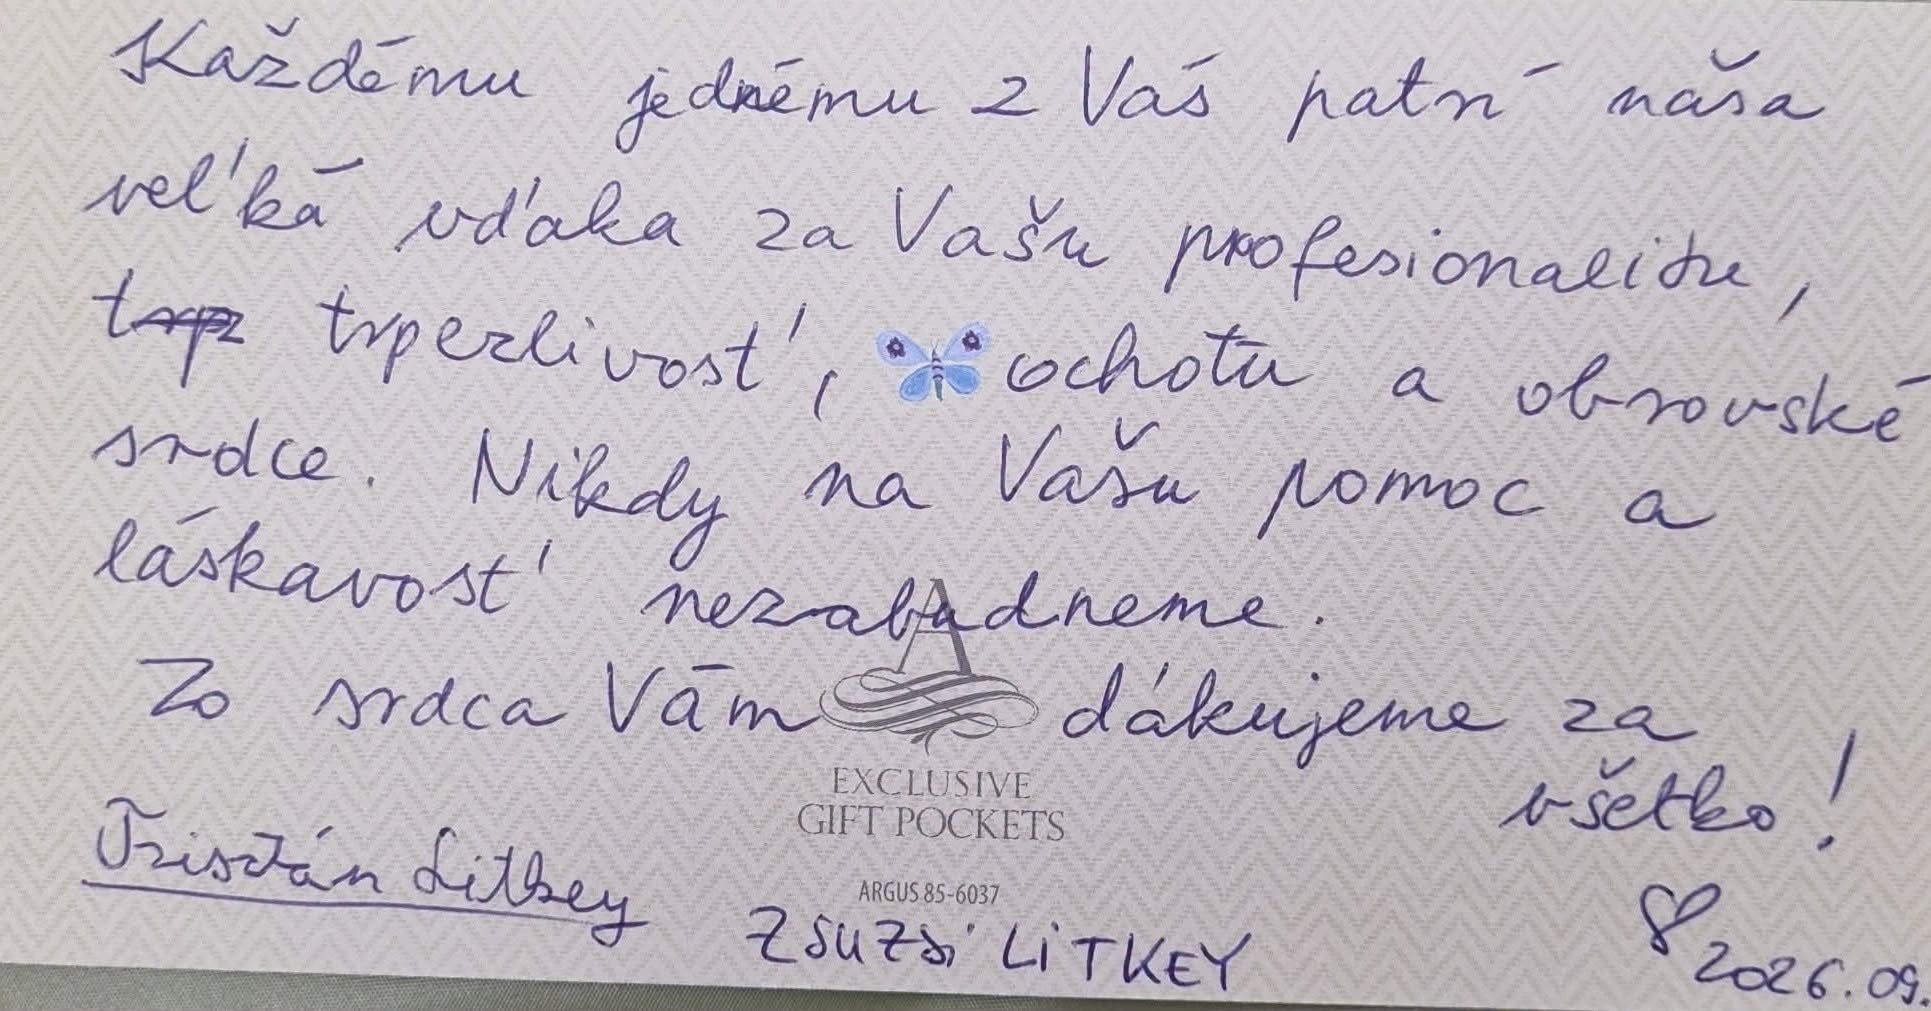 Každému jednému z Vás patrí naša
veľká vďaka za Vašu profesionalitu,
trpezlivosť, ochotu a obrovské
srdce. Nikdy na Vašu pomoc a
láskavosť nezabudneme.
Zo srdca Vám dákujeme za
všetko!
EXCLUSIVE
GIFT POCKETS
ARGUS 85-6037
Trisztán Litkey
ZSUZSi LiTKEY
2026.09.